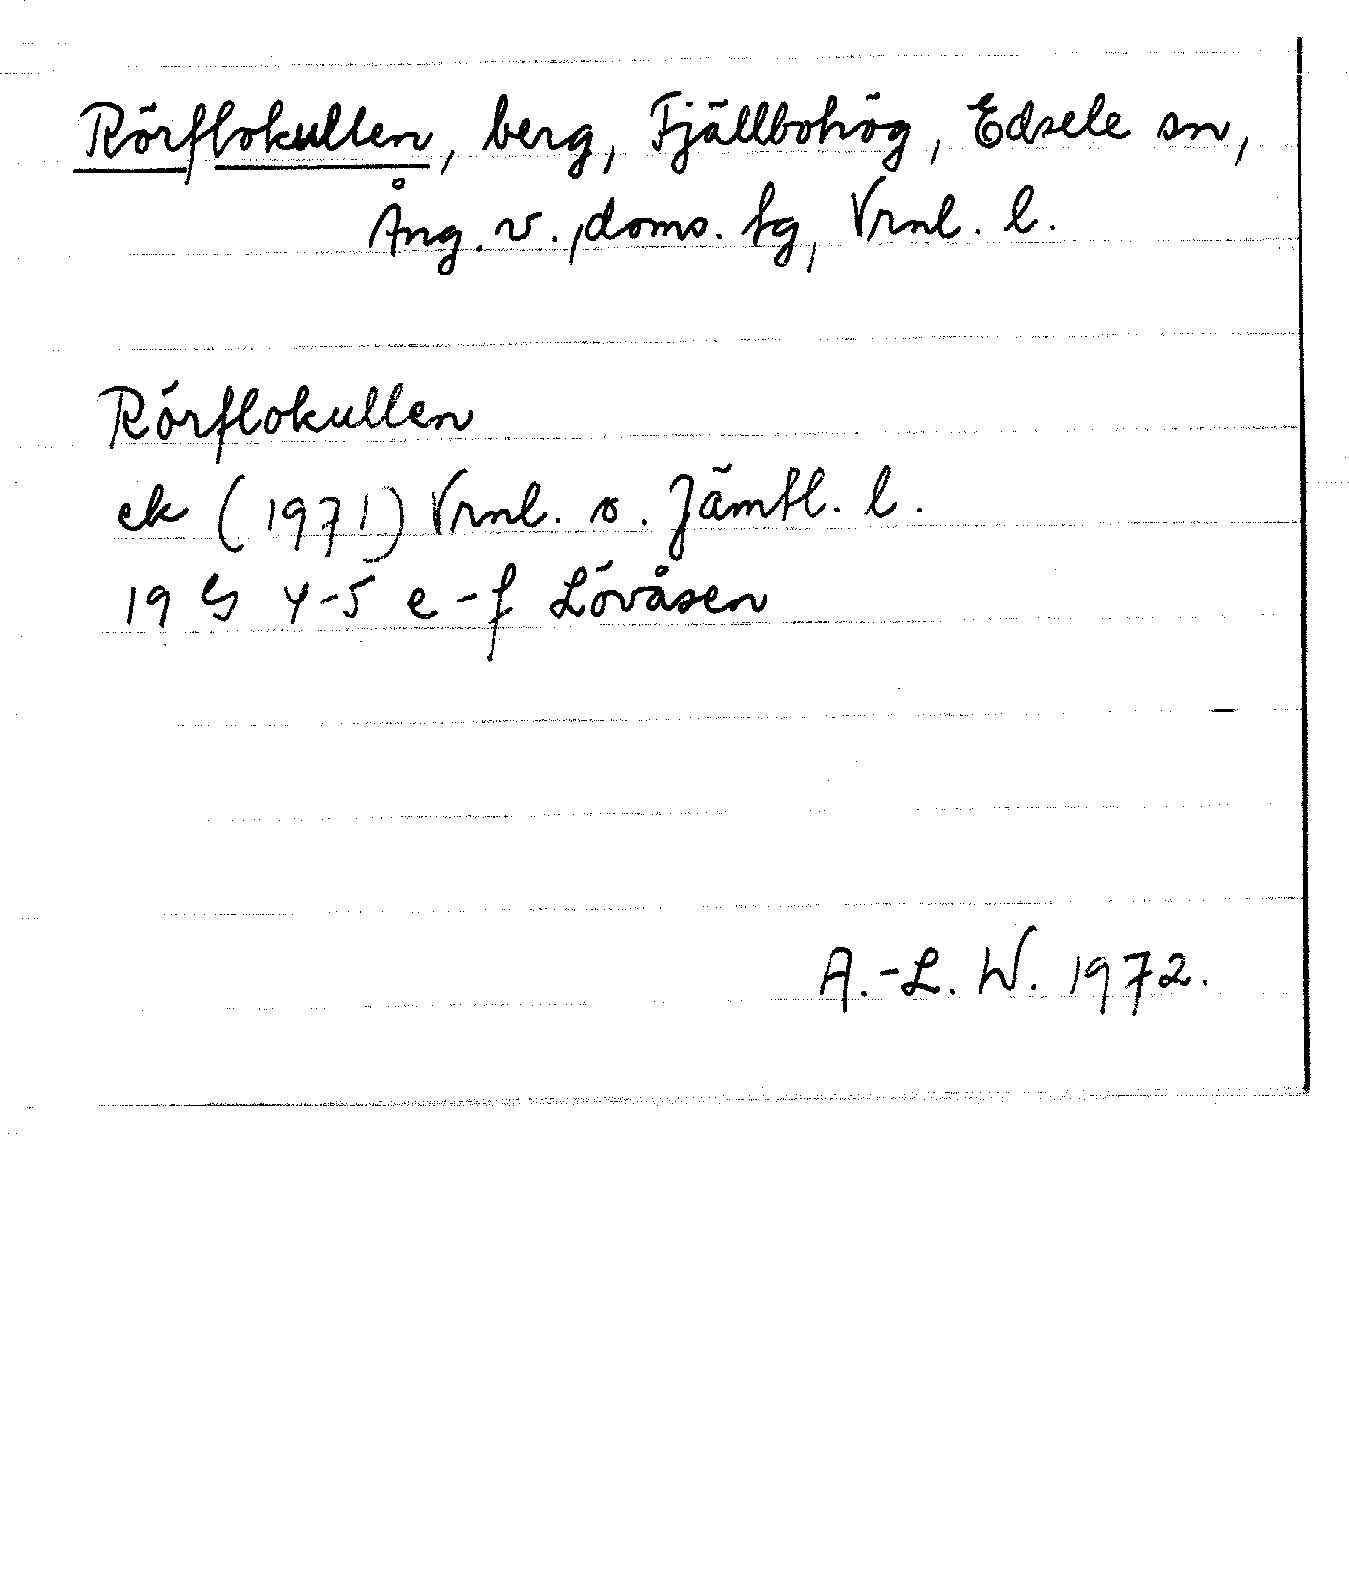 Rörflokullen, berg, Fjällbohög, Edsele sn,
Ång. v., doms. tg, Vrnl. l.
Rörflokullen
ek (1971) Vrnl. o. Jämtl. l.
19 G 4-5 e-f Lövåsen
A.-L. W. 1972.